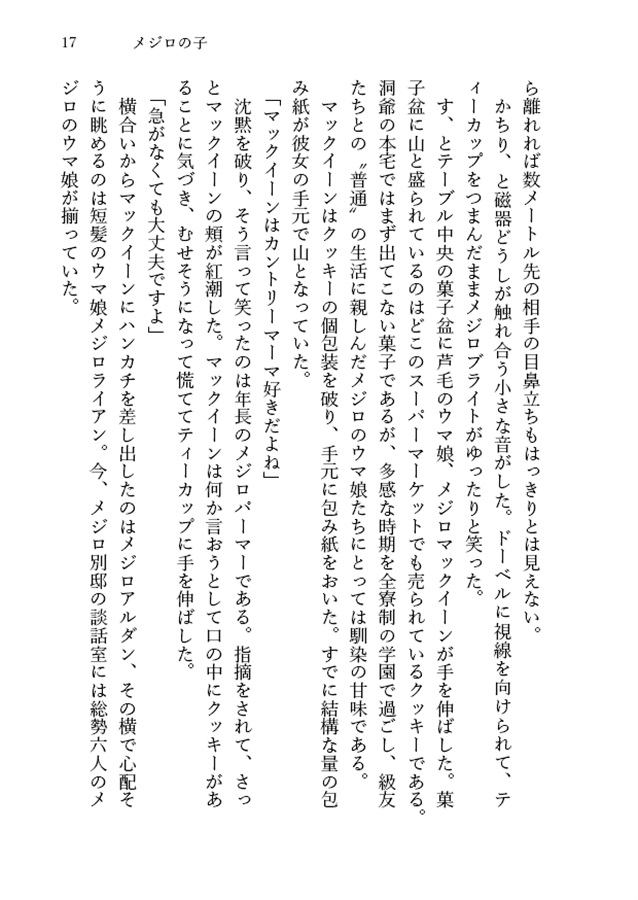 17　メジロの子
ら離れれば数メートル先の相手の目鼻立ちもはっきりとは見えない。
　かちり、と磁器どうしが触れ合う小さな音がした。ドーベルに視線を向けられて、テ
ィーカップをつまんだままメジロブライトがゆったりと笑った。
　す、とテーブル中央の菓子盆に芦毛のウマ娘、メジロマックイーンが手を伸ばした。菓
子盆に山と盛られているのはどこのスーパーマーケットでも売られているクッキーである。
洞爺の本宅ではまず出てこない菓子であるが、多感な時期を全寮制の学園で過ごし、級友
たちとの〝普通〟の生活に親しんだメジロのウマ娘たちにとっては馴染の甘味である。
　マックイーンはクッキーの個包装を破り、手元に包み紙をおいた。すでに結構な量の包
み紙が彼女の手元で山となっていた。
「マックイーンはカントリーマーマ好きだよね」
　沈黙を破り、そう言って笑ったのは年長のメジロパーマーである。指摘をされて、さっ
とマックイーンの頬が紅潮した。マックイーンは何か言おうとして口の中にクッキーがあ
ることに気づき、むせそうになって慌ててティーカップに手を伸ばした。
「急がなくても大丈夫ですよ」
　横合いからマックイーンにハンカチを差し出したのはメジロアルダン、その横で心配そ
うに眺めるのは短髪のウマ娘メジロライアン。今、メジロ別邸の談話室には総勢六人のメ
ジロのウマ娘が揃っていた。